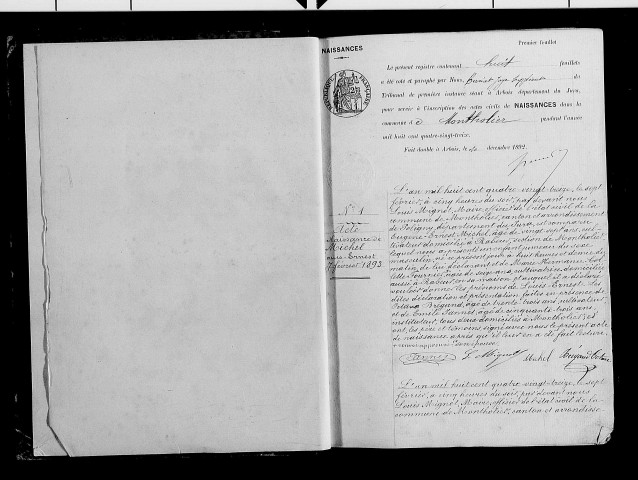 NAISSANCES
Premier feuillet
Le présent registre contenant huit feuillets
a été coté et paraphé par Nous, du
Tribunal de première instance séant à Arbois département du Jura,
pour servir à l'inscription des actes civils de NAISSANCES dans la
commune d e Montholier pendant l'année
mil huit cent quatre-vingt-treize.
Fait double à Arbois, le décembre 1892.
N° 1
Acte
Naissance de
Michel
Louis-Ernest
7 février 1893
L'an mil huit cent quatre vingt-treize, le sept
février, à cinq heures du soir, par devant nous
Louis Mignot, Maire, officier de l'état civil de la
commune de Montholier, canton et arrondissement
de Poligny, département du Jura, est comparu
Eugène-Ernest Michel, âgé de vingt sept ans, cul-
tivateur domicilié à Rabeur, section de Montholier,
lequel nous a présenté un enfant nouveau du sexe
masculin, né ce présent jour à huit heures et demie du
matin, de lui déclarant et de Marie
Fournier, âgée de ans, cultivatrice, domiciliée
aussi à Rabeur, en sa maison, et auquel il a déclaré
vouloir donner les prénoms de Louis Ernest. Les
dites déclaration et présentation faites en présence de
Brégand, âgé de trente-trois ans, cultivateur,
et de Emile Vannet, âgé de cinquante-trois ans,
instituteur, tous deux domiciliés à Montholier, et
ont, les père et témoins signé avec nous le présent acte
de naissance, après qu'il leur en a été fait lecture.
L. Mignot Michel Brégand
L'an mil huit cent quatre vingt-treize, le sept
février, à cinq heures du soir, par devant nous
Louis Mignot, Maire, officier de l'état civil de la
commune de Montholier, canton et arrondisse-